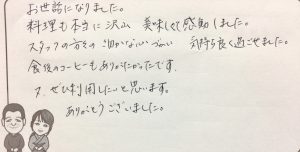 お世話になりました。
料理も本当に沢山 美味しくて感動しました。
スタッフの方々の 気持ち良く過ごせました。
食後のコーヒーもありがたかったです。
又、ぜひ利用したいと思います。
ありがとうございました。